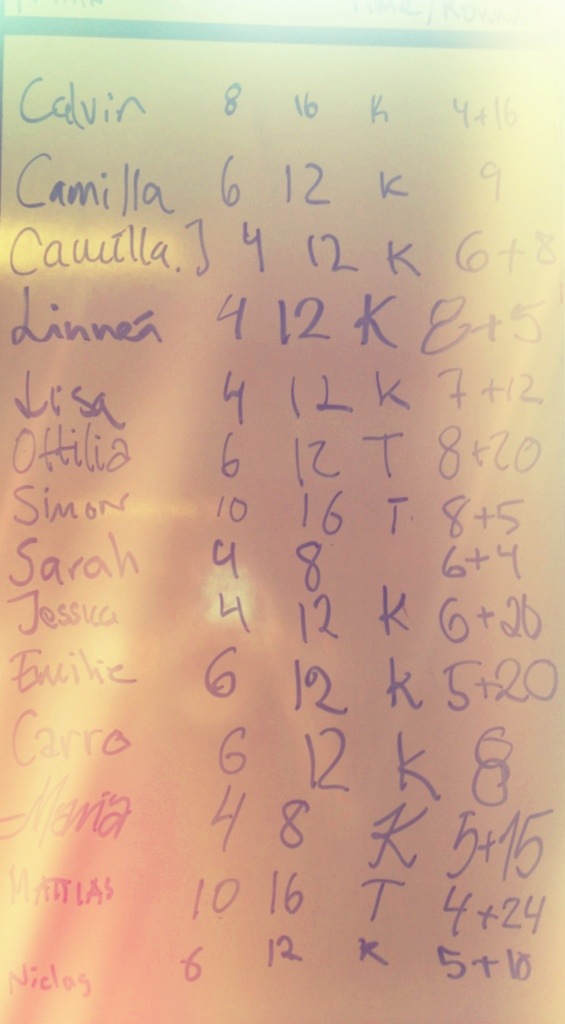 Calvin 8 16 K 4+16
Camilla 6 12 K 9
Camilla.J 4 12 K 6+8
Linnea 4 12 K 8+5
Lisa 4 12 K 7+12
Ottilia 6 12 T 8+20
Simon 10 16 T 8+5
Sarah 4 8 6+4
Jessica 4 12 K 6+20
Emilie 6 12 K 5+20
Carro 6 12 K 8
Maria 4 8 K 5+15
MATTIAS 10 16 T 4+24
Niclas 6 12 K